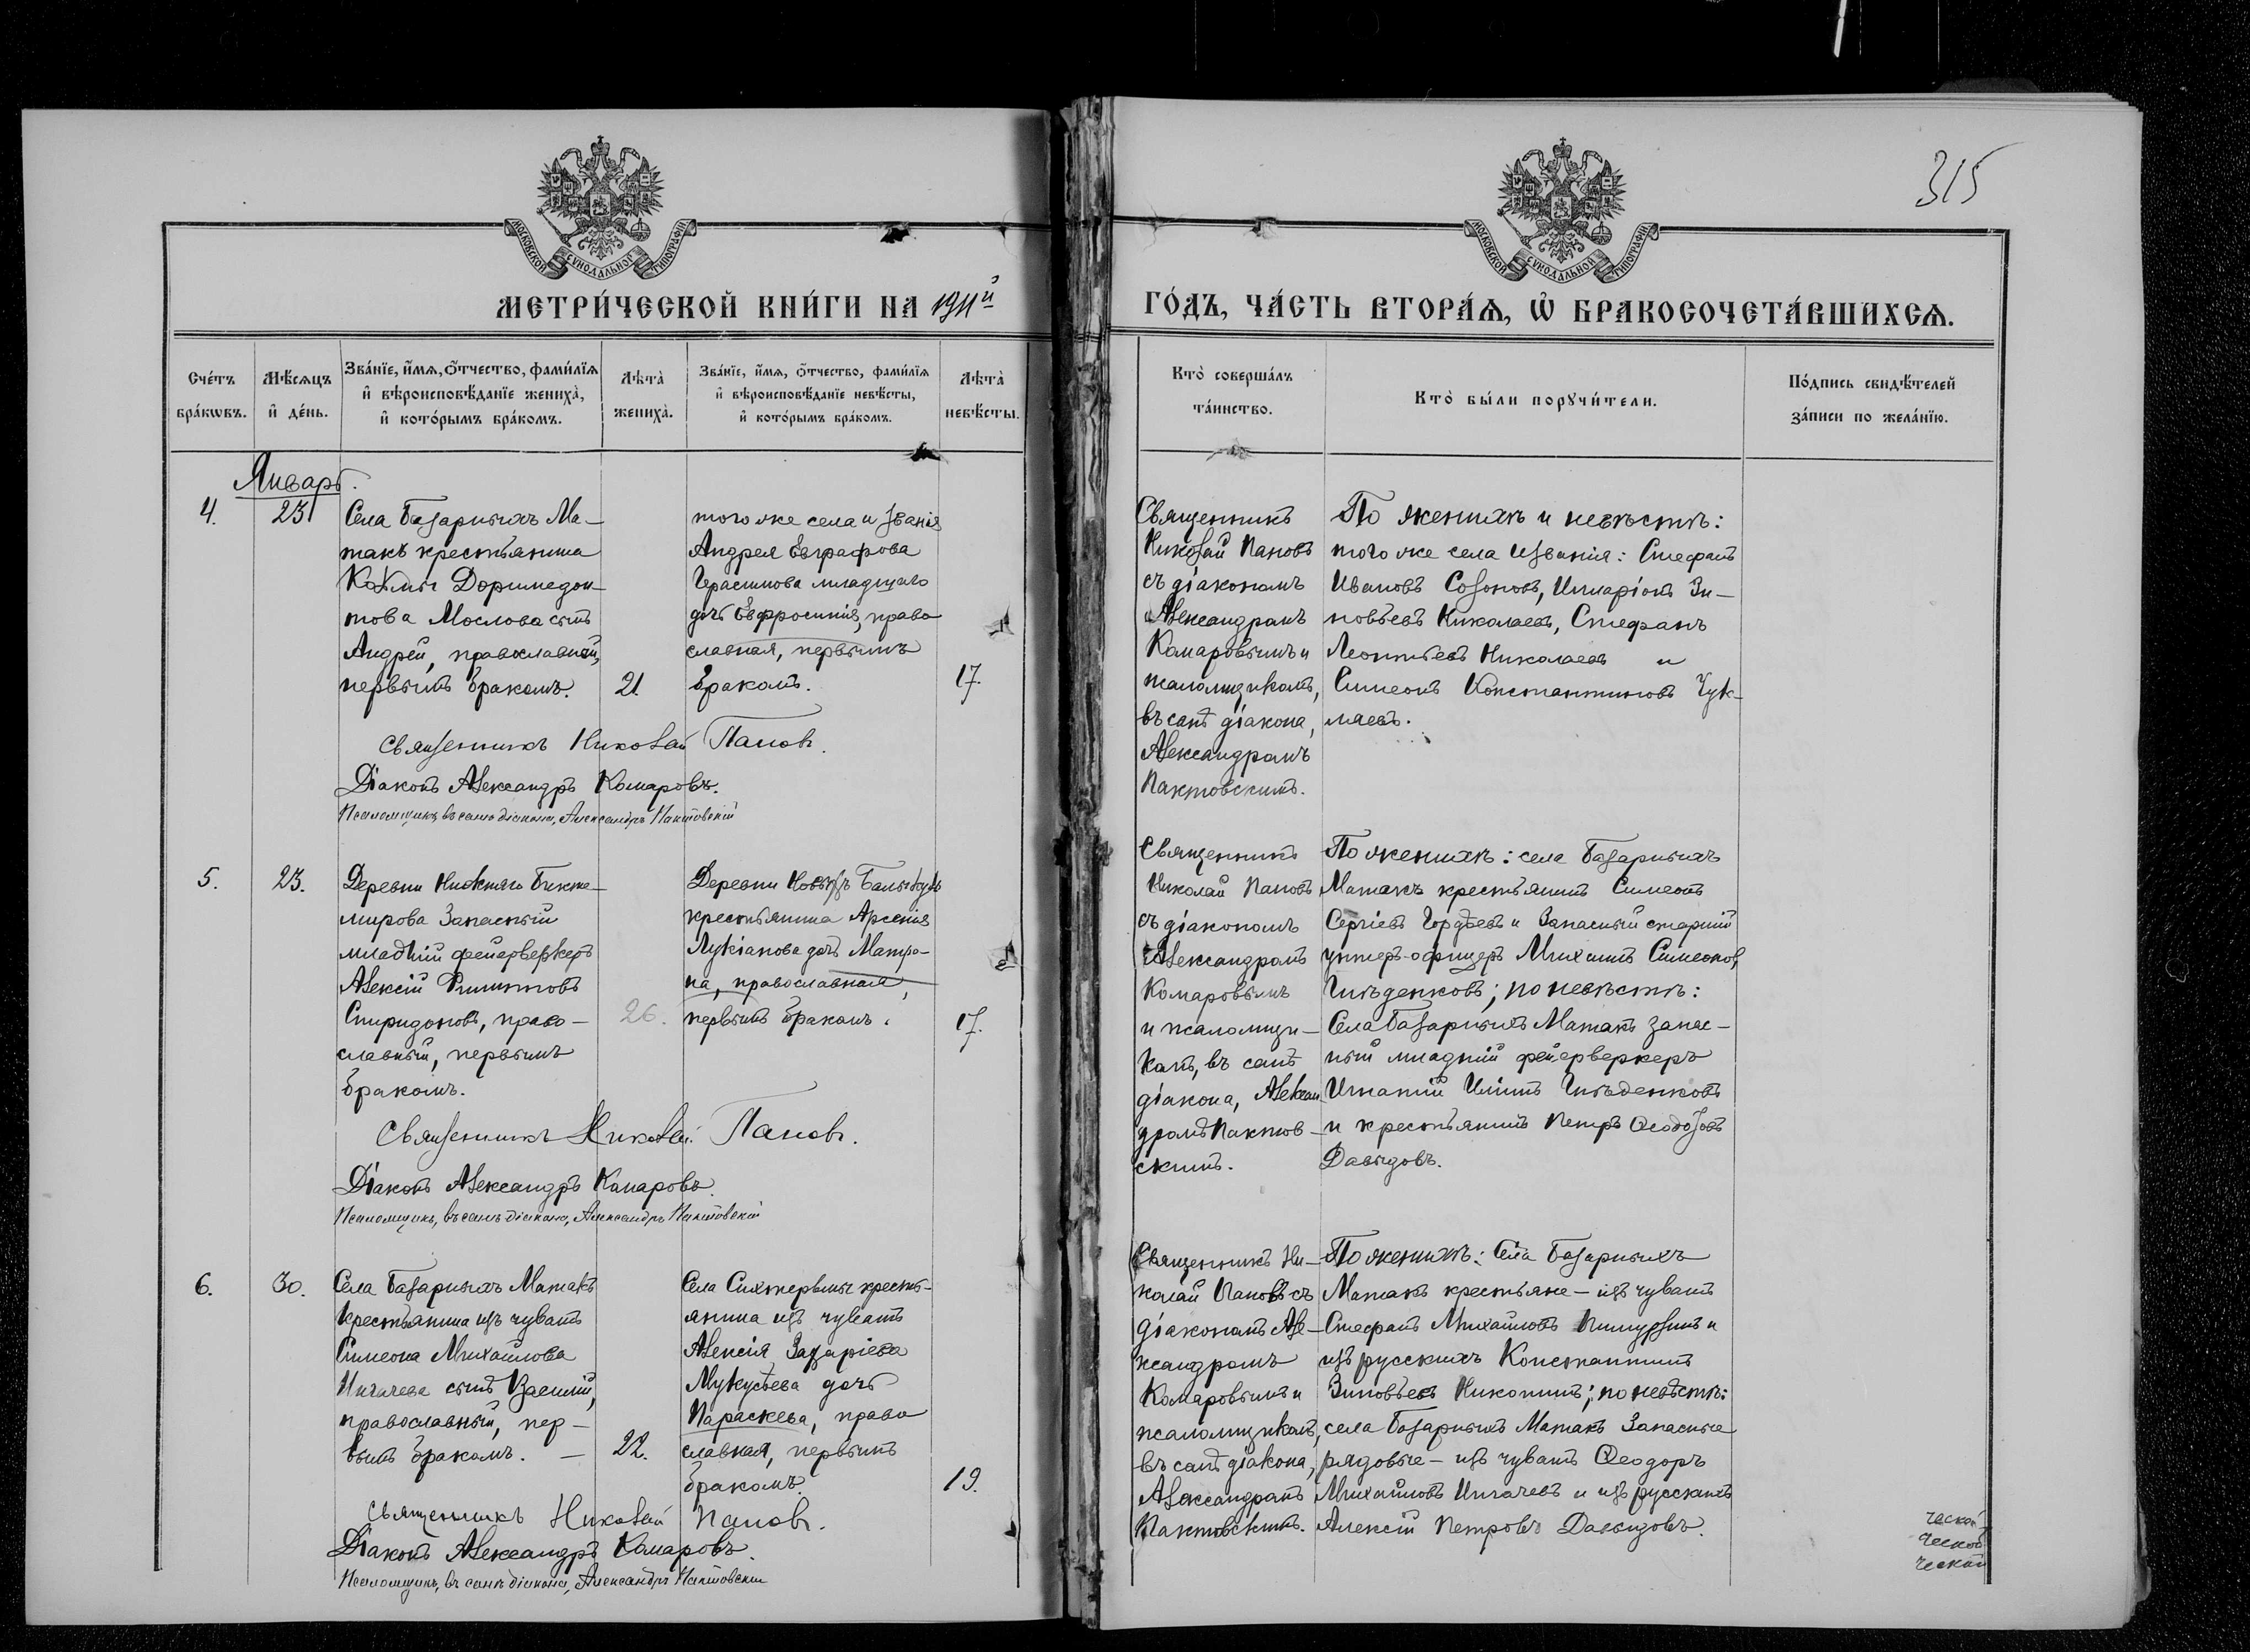 315
МОСКОВСКОЙ СѴНОДАЛЬНОЙ ТИПОГРАФІИ
МОСКОВСКОЙ СѴНОДАЛЬНОЙ ТИПОГРАФІИ
МЕТРИ́ЧЕСКОЙ КНИ́ГИ НА 1911й
ГО́ДЪ, ЧА́СТЬ ВТОРА́Ѧ, Ѡ҆ БРАКОСОЧЕТА́ВШИХСѦ.
Сче́тъ
бра́кѡвъ.
Мѣ́сѧцъ
и҆ де́нь.
Зва́нїе, и҆́мѧ, ѻ҆́тчество, фами́лїѧ
и҆ вѣроисповѣ́данїе жениха̀,
и҆ кото́рымъ бра́комъ.
Лѣта̀
жениха̀.
Зва́нїе, и҆́мѧ, ѻ҆́тчество, фами́лїѧ
и҆ вѣроисповѣ́данїе невѣ́сты,
и҆ кото́рымъ бра́комъ.
Лѣта̀
невѣ́сты.
Кто̀ соверша́лъ
та́инство.
Кто̀ бы́ли порꙋчи́тели.
По́дпись свидѣ́телей
за́писи по жела́нїю.
Январь.
4.
23
Села Базарныхъ Ма-
такъ крестьянина
Козмы Доримедон-
това Мослова сынъ
Андрей, православный,
первымъ бракомъ.
21.
того же села и званія
Андрея Евграфова
Герасимова младшаго
дочь Евфросинія, право
славная, первымъ
бракомъ.
17.
Священникъ
Николай Пановъ
съ діакономъ
Александромъ
Комаровымъ и
псаломщикомъ,
въ санѣ діакона,
Александромъ
Пактовскимъ.
По женихѣ и невѣстѣ:
того же села и званія: Стефанъ
Ивановъ Созоновъ, Иларіонъ Зи-
новьевъ Николаевъ, Стефанъ
Леонтьевъ Николаевъ и
Симеонъ Константиновъ Чук-
маевъ.
Священникъ Николай Пановъ.
Діаконъ Александръ Комаровъ.
Псаломщикъ, въ санѣ діакона, Александръ Пактовскій
5.
23.
Деревни Нижняго Бикте-
мирова Запасный
младшій фейерверкеръ
Алексій Филипповъ
Спиридоновъ, право-
славный, первымъ
бракомъ.
26.
Деревни Новыхъ
крестьянина Арсенія
Лукіанова дочь Матро-
на, православная,
первымъ бракомъ.
17.
Священникъ
Николай Пановъ
съ діакономъ
Александромъ
Комаровымъ
и псаломщи-
комъ, въ санѣ
діакона, Алексан-
дромъ Пактов-
скимъ.
По женихѣ: села Базарныхъ
Матакъ крестьянинъ Симеонъ
Сергіевъ Гордѣевъ и Запасный старшій
унтеръ-офицеръ Михаилъ Симеоновъ
Гнѣденковъ; по невѣстѣ:
Села Базарныхъ Матакъ запас-
ный младшій фейерверкеръ
Игнатій Иліинъ Гнѣденковъ
и крестьянинъ Петръ Ѳеодозовъ
Давыдовъ.
Священникъ Николай Пановъ.
Діаконъ Александръ Комаровъ.
Псаломщикъ, въ санѣ діакона, Александръ Пактовскій
6.
30.
Села Базарныхъ Матакъ
крестьянина изъ чувашъ
Симеона Михайлова
Ингачева сынъ Василій,
православный, пер-
вымъ бракомъ. —
22.
Села Сихтермы крестья-
янина изъ чувашъ
Алексія Захаріева
дочь
Параскева, право
славная, первымъ
бракомъ.
19.
Священникъ Ни-
колай Пановъ съ
діакономъ Але-
ксандромъ
Комаровымъ и
псаломщикомъ,
въ санѣ діакона,
Александромъ
Пактовскимъ.
По женихѣ: Села Базарныхъ
Матакъ крестьяне - изъ чувашъ
Стефанъ Михайловъ и
изъ русскихъ Константинъ
Зиновьевъ Никитинъ; по невѣстѣ:
села Базарныхъ Матакъ Запасные
рядовые - изъ чувашъ Ѳеодоръ
Михайловъ Ингачевъ и изъ русскихъ
Алексій Петровъ Давыдовъ.
Священникъ Николай Пановъ.
Діаконъ Александръ Комаровъ.
Псаломщикъ, въ санѣ діакона, Александръ Пактовскій
ческой
ческой
ческой